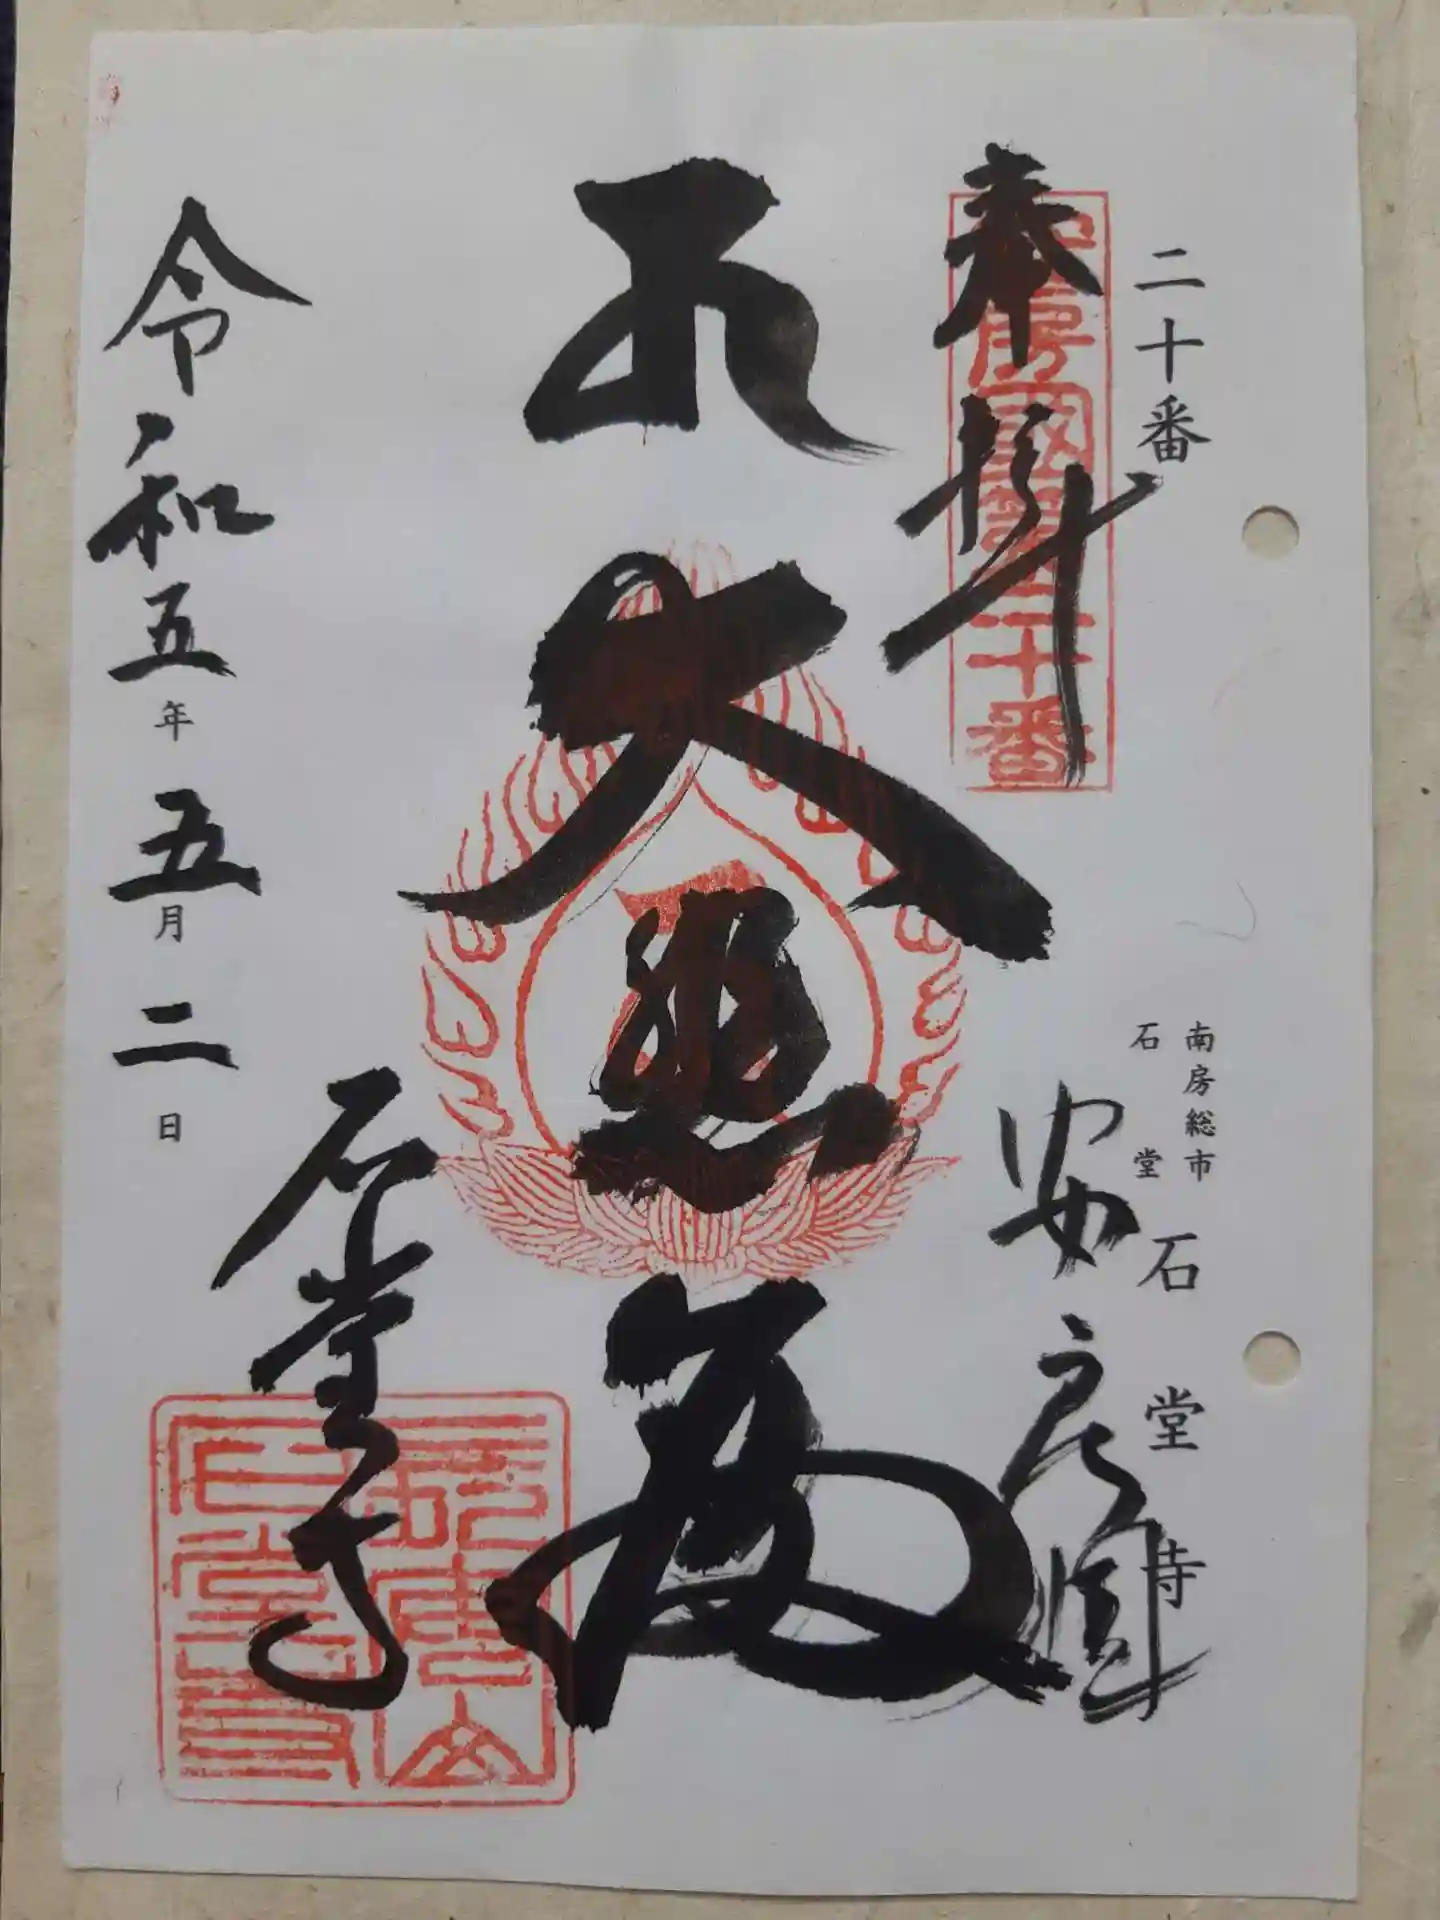 二十番
南房総市
石堂
石堂寺
奉拝
安房國第二十番
安房國
大悲殿
令和五年五月二日
石堂寺